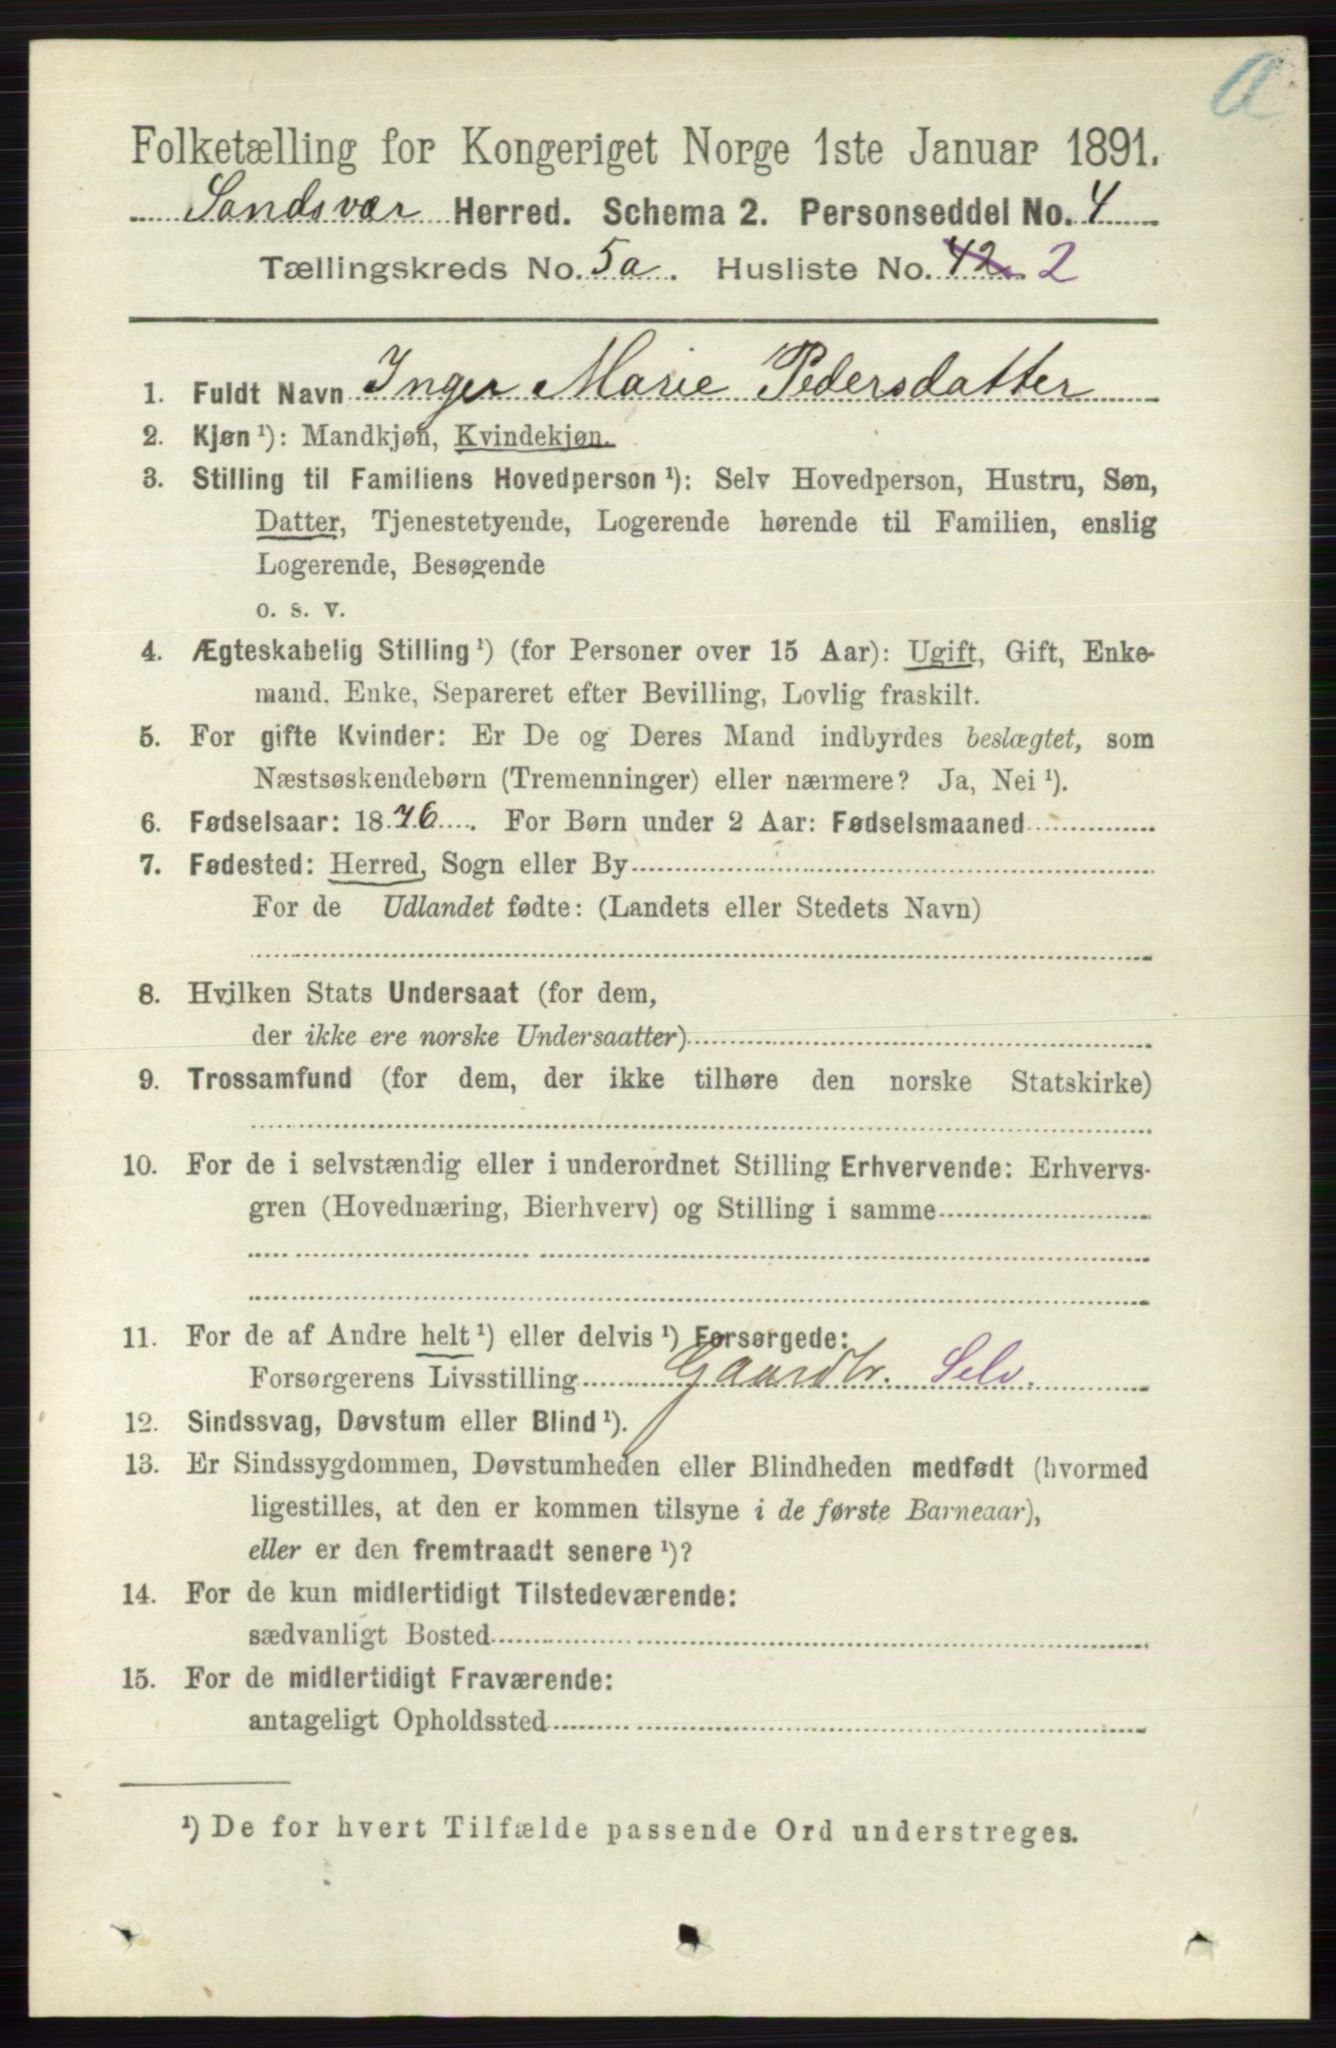 a
Folketælling for Kongeriget Norge 1ste Januar 1891.
Sandsvær Herred. Schema 2. Personseddel No. 4
Tællingskreds No. 5a. Husliste No. 42 2
1. Fuldt Navn Inger Marie Pedersdatter
2. Kjøn¹): Mandkjøn, Kvindekjøn.
3. Stilling til Familiens Hovedperson¹): Selv Hovedperson, Hustru, Søn,
Datter, Tjenestetyende, Logerende hørende til Familien, enslig
Logerende, Besøgende
o. s. v.
4. Ægteskabelig Stilling¹) (for Personer over 15 Aar): Ugift, Gift, Enke-
mand, Enke, Separeret efter Bevilling, Lovlig fraskilt.
5. For gifte Kvinder: Er De og Deres Mand indbyrdes beslægtet, som
Næstsøskendebørn (Tremenninger) eller nærmere? Ja, Nei¹).
6. Fødselsaar: 1876. For Børn under 2 Aar: Fødselsmaaned
7. Fødested: Herred, Sogn eller By
For de Udlandet fødte: (Landets eller Stedets Navn)
8. Hvilken Stats Undersaat (for dem,
der ikke ere norske Undersaatter)
9. Trossamfund (for dem, der ikke tilhøre den norske Statskirke)
10. For de i selvstændig eller i underordnet Stilling Erhvervende: Erhvervs-
gren (Hovednæring, Bierhverv) og Stilling i samme
11. For de af Andre helt¹) eller delvis¹) Forsørgede:
Forsørgerens Livsstilling Gaardbr. Selv.
12. Sindssvag, Døvstum eller Blind¹).
13. Er Sindssygdommen, Døvstumheden eller Blindheden medfødt (hvormed
ligestilles, at den er kommen tilsyne i de første Barneaar),
eller er den fremtraadt senere¹)?
14. For de kun midlertidigt Tilstedeværende:
sædvanligt Bosted
15. For de midlertidigt Fraværende:
antageligt Opholdssted
¹) De for hvert Tilfælde passende Ord understreges.